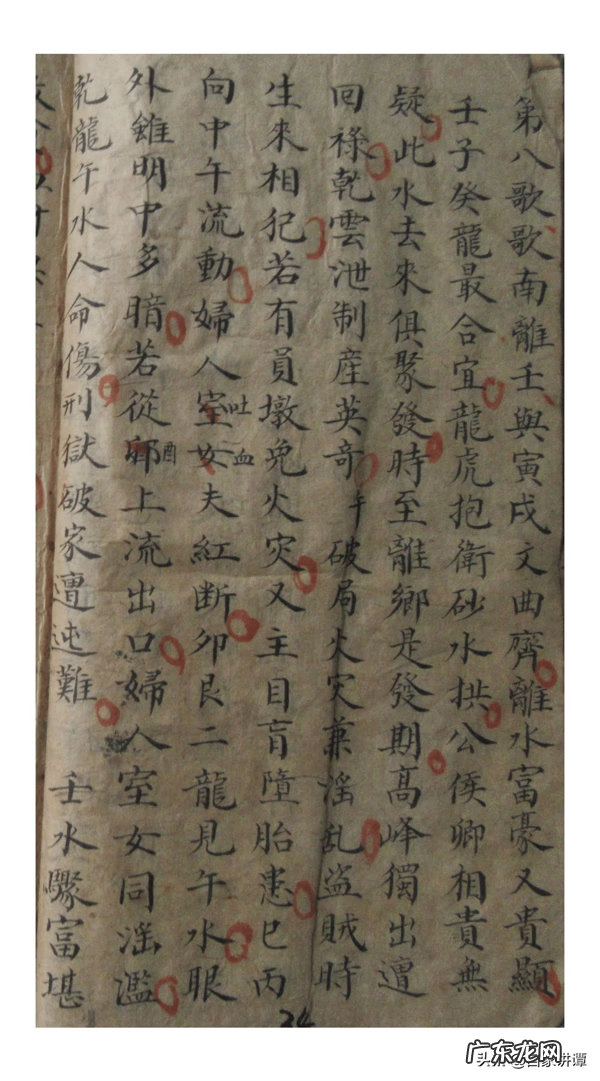 第八歌歌南離壬與寅戌文曲齊離水富豪又貴顯
壬子癸龍最合宜龍虎抱衛砂水拱公侯卿相貴無
疑此水去來俱聚發時至離鄉是發期高峰獨出遭
回祿乾雲泄制産英奇 午破局火灾兼滛乱盗賊時
生來相犯若有員墩免火灾又主目盲墮胎患巳丙
向中午流動婦人室女吐血夫紅断卯艮二龍見午水眼
外雖明中多暗若從酉上流出口婦人室女同滛濫
乾龍午水人命傷刑獄破家遭迍難 壬水驟富堪
34
广东龙网
头条 @百家讲谭